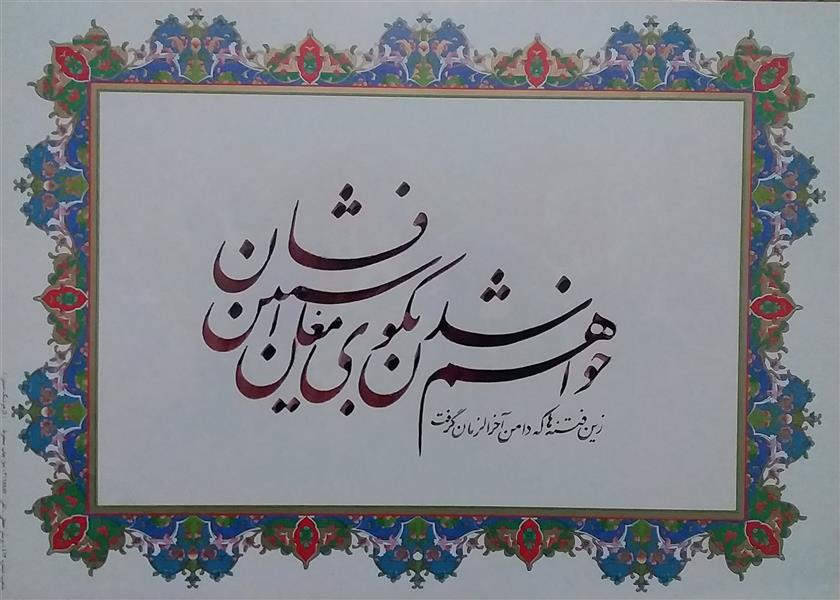 خواهم شدن بکوی مغان آستین فشان
زین فتنه‌ها که دامن آخرالزمان گرفت